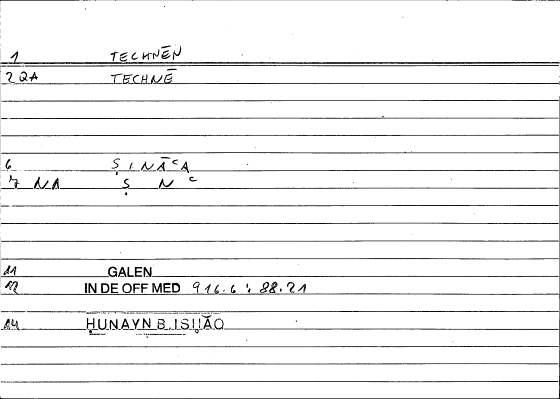 1 TECHNĒN
2 QA TECHNĒ
6 ṢINĀᶜA
7 NA Ṣ N ᶜ
11 GALEN
12 IN DE OFF MED 916.6 : 88.21
14 ḤUNAYN B. ISḤĀQ